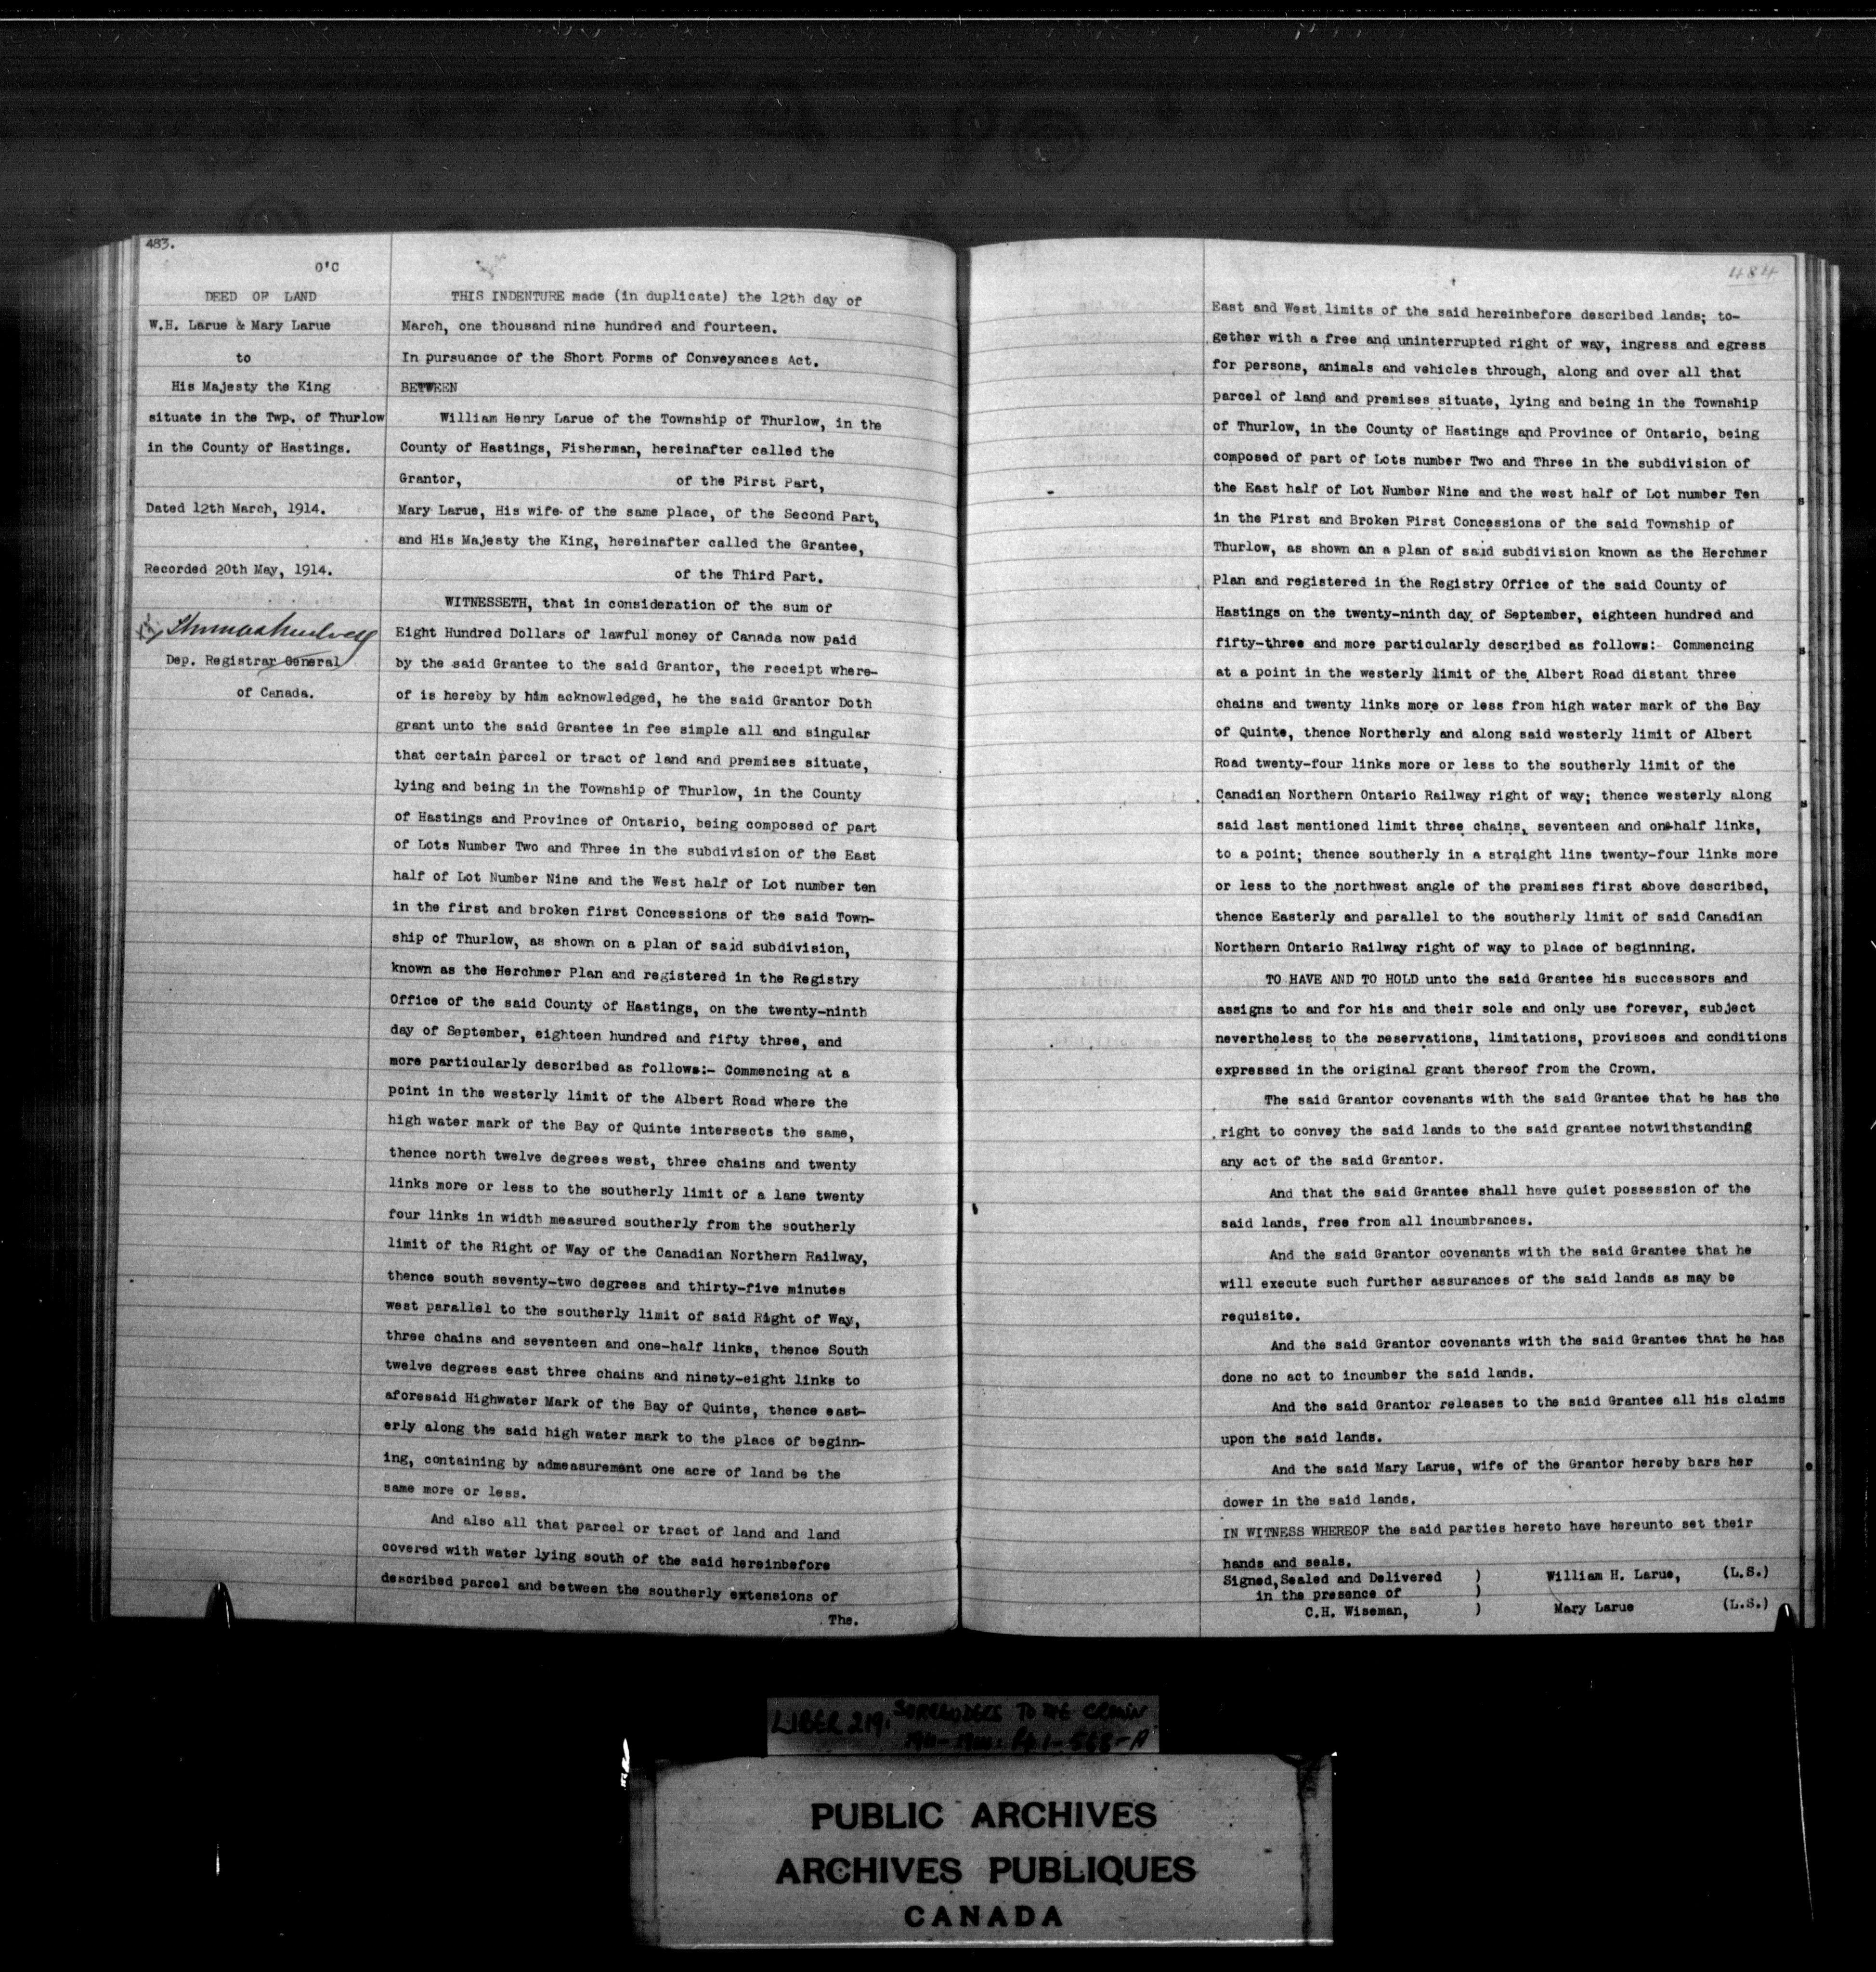 483.
O'C
DEED OF LAND
W.H. Larue & Mary Larue
to
His Majesty the King
situate in the Twp. of Thurlow
in the County of Hastings.
Dated 12th March, 1914.
Recorded 20th May, 1914.
Dep. Registrar General
of Canada.
THIS INDENTURE made (in duplicate) the 12th day of
March, one thousand nine hundred and fourteen.
In pursuance of the Short Forms of Conveyances Act.
BETWEEN
William Henry Larue of the Township of Thurlow, in the
County of Hastings, Fisherman, hereinafter called the
Grantor, of the First Part,
Mary Larue, His wife of the same place, of the Second Part,
and His Majesty the King, hereinafter called the Grantee,
of the Third Part.
WITNESSETH, that in consideration of the sum of
Eight Hundred Dollars of lawful money of Canada now paid
by the said Grantee to the said Grantor, the receipt where-
of is hereby by him acknowledged, he the said Grantor Doth
grant unto the said Grantee in fee simple all and singular
that certain parcel or tract of land and premises situate,
lying and being in the Township of Thurlow, in the County
of Hastings and Province of Ontario, being composed of part
of Lots Number Two and Three in the subdivision of the East
half of Lot Number Nine and the West half of Lot number ten
in the first and broken first Concessions of the said Town-
ship of Thurlow, as shown on a plan of said subdivision,
known as the Herchmer Plan and registered in the Registry
Office of the said County of Hastings, on the twenty-ninth
day of September, eighteen hundred and fifty three, and
more particularly described as follows:- Commencing at a
point in the westerly limit of the Albert Road where the
high water mark of the Bay of Quinte intersects the same,
thence north twelve degrees west, three chains and twenty
links more or less to the southerly limit of a lane twenty
four links in width measured southerly from the southerly
limit of the Right of Way of the Canadian Northern Railway,
thence south seventy-two degrees and thirty-five minutes
west parallel to the southerly limit of said Right of Way,
three chains and seventeen and one-half links, thence South
twelve degrees east three chains and ninety-eight links to
aforesaid Highwater Mark of the Bay of Quinte, thence east-
erly along the said high water mark to the place of beginn-
ing, containing by admeasurement one acre of land be the
same more or less.
And also all that parcel or tract of land and land
covered with water lying south of the said hereinbefore
described parcel and between the southerly extensions of
The.
484
East and West limits of the said hereinbefore described lands; to-
gether with a free and uninterrupted right of way, ingress and egress
for persons, animals and vehicles through, along and over all that
parcel of land and premises situate, lying and being in the Township
of Thurlow, in the County of Hastings and Province of Ontario, being
composed of part of Lots number Two and Three in the subdivision of
the East half of Lot Number Nine and the west half of Lot number Ten
in the First and Broken First Concessions of the said Township of
Thurlow, as shown on a plan of said subdivision known as the Herchmer
Plan and registered in the Registry Office of the said County of
Hastings on the twenty-ninth day of September, eighteen hundred and
fifty-three and more particularly described as follows:- Commencing
at a point in the westerly limit of the Albert Road distant three
chains and twenty links more or less from high water mark of the Bay
of Quinte, thence Northerly and along said westerly limit of Albert
Road twenty-four links more or less to the southerly limit of the
Canadian Northern Ontario Railway right of way; thence westerly along
said last mentioned limit three chains, seventeen and one-half links,
to a point; thence southerly in a straight line twenty-four links more
or less to the northwest angle of the premises first above described,
thence Easterly and parallel to the southerly limit of said Canadian
Northern Ontario Railway right of way to place of beginning.
TO HAVE AND TO HOLD unto the said Grantee his successors and
assigns to and for his and their sole and only use forever, subject
nevertheless to the reservations, limitations, provisoes and conditions
expressed in the original grant thereof from the Crown.
The said Grantor covenants with the said Grantee that he has the
right to convey the said lands to the said grantee notwithstanding
any act of the said Grantor.
And that the said Grantee shall have quiet possession of the
said lands, free from all incumbrances.
And the said Grantor covenants with the said Grantee that he
will execute such further assurances of the said lands as may be
requisite.
And the said Grantor covenants with the said Grantee that he has
done no act to incumber the said lands.
And the said Grantor releases to the said Grantee all his claims
upon the said lands.
And the said Mary Larue, wife of the Grantor hereby bars her
dower in the said lands.
IN WITNESS WHEREOF the said parties hereto have hereunto set their
hands and seals.
Signed, Sealed and Delivered ) William H. Larue, (L.S.)
in the presence of )
C.H. Wiseman, ) Mary Larue (L.S.)
LIBER 219. SURRENDERS TO THE CROWN
PUBLIC ARCHIVES
ARCHIVES PUBLIQUES
CANADA